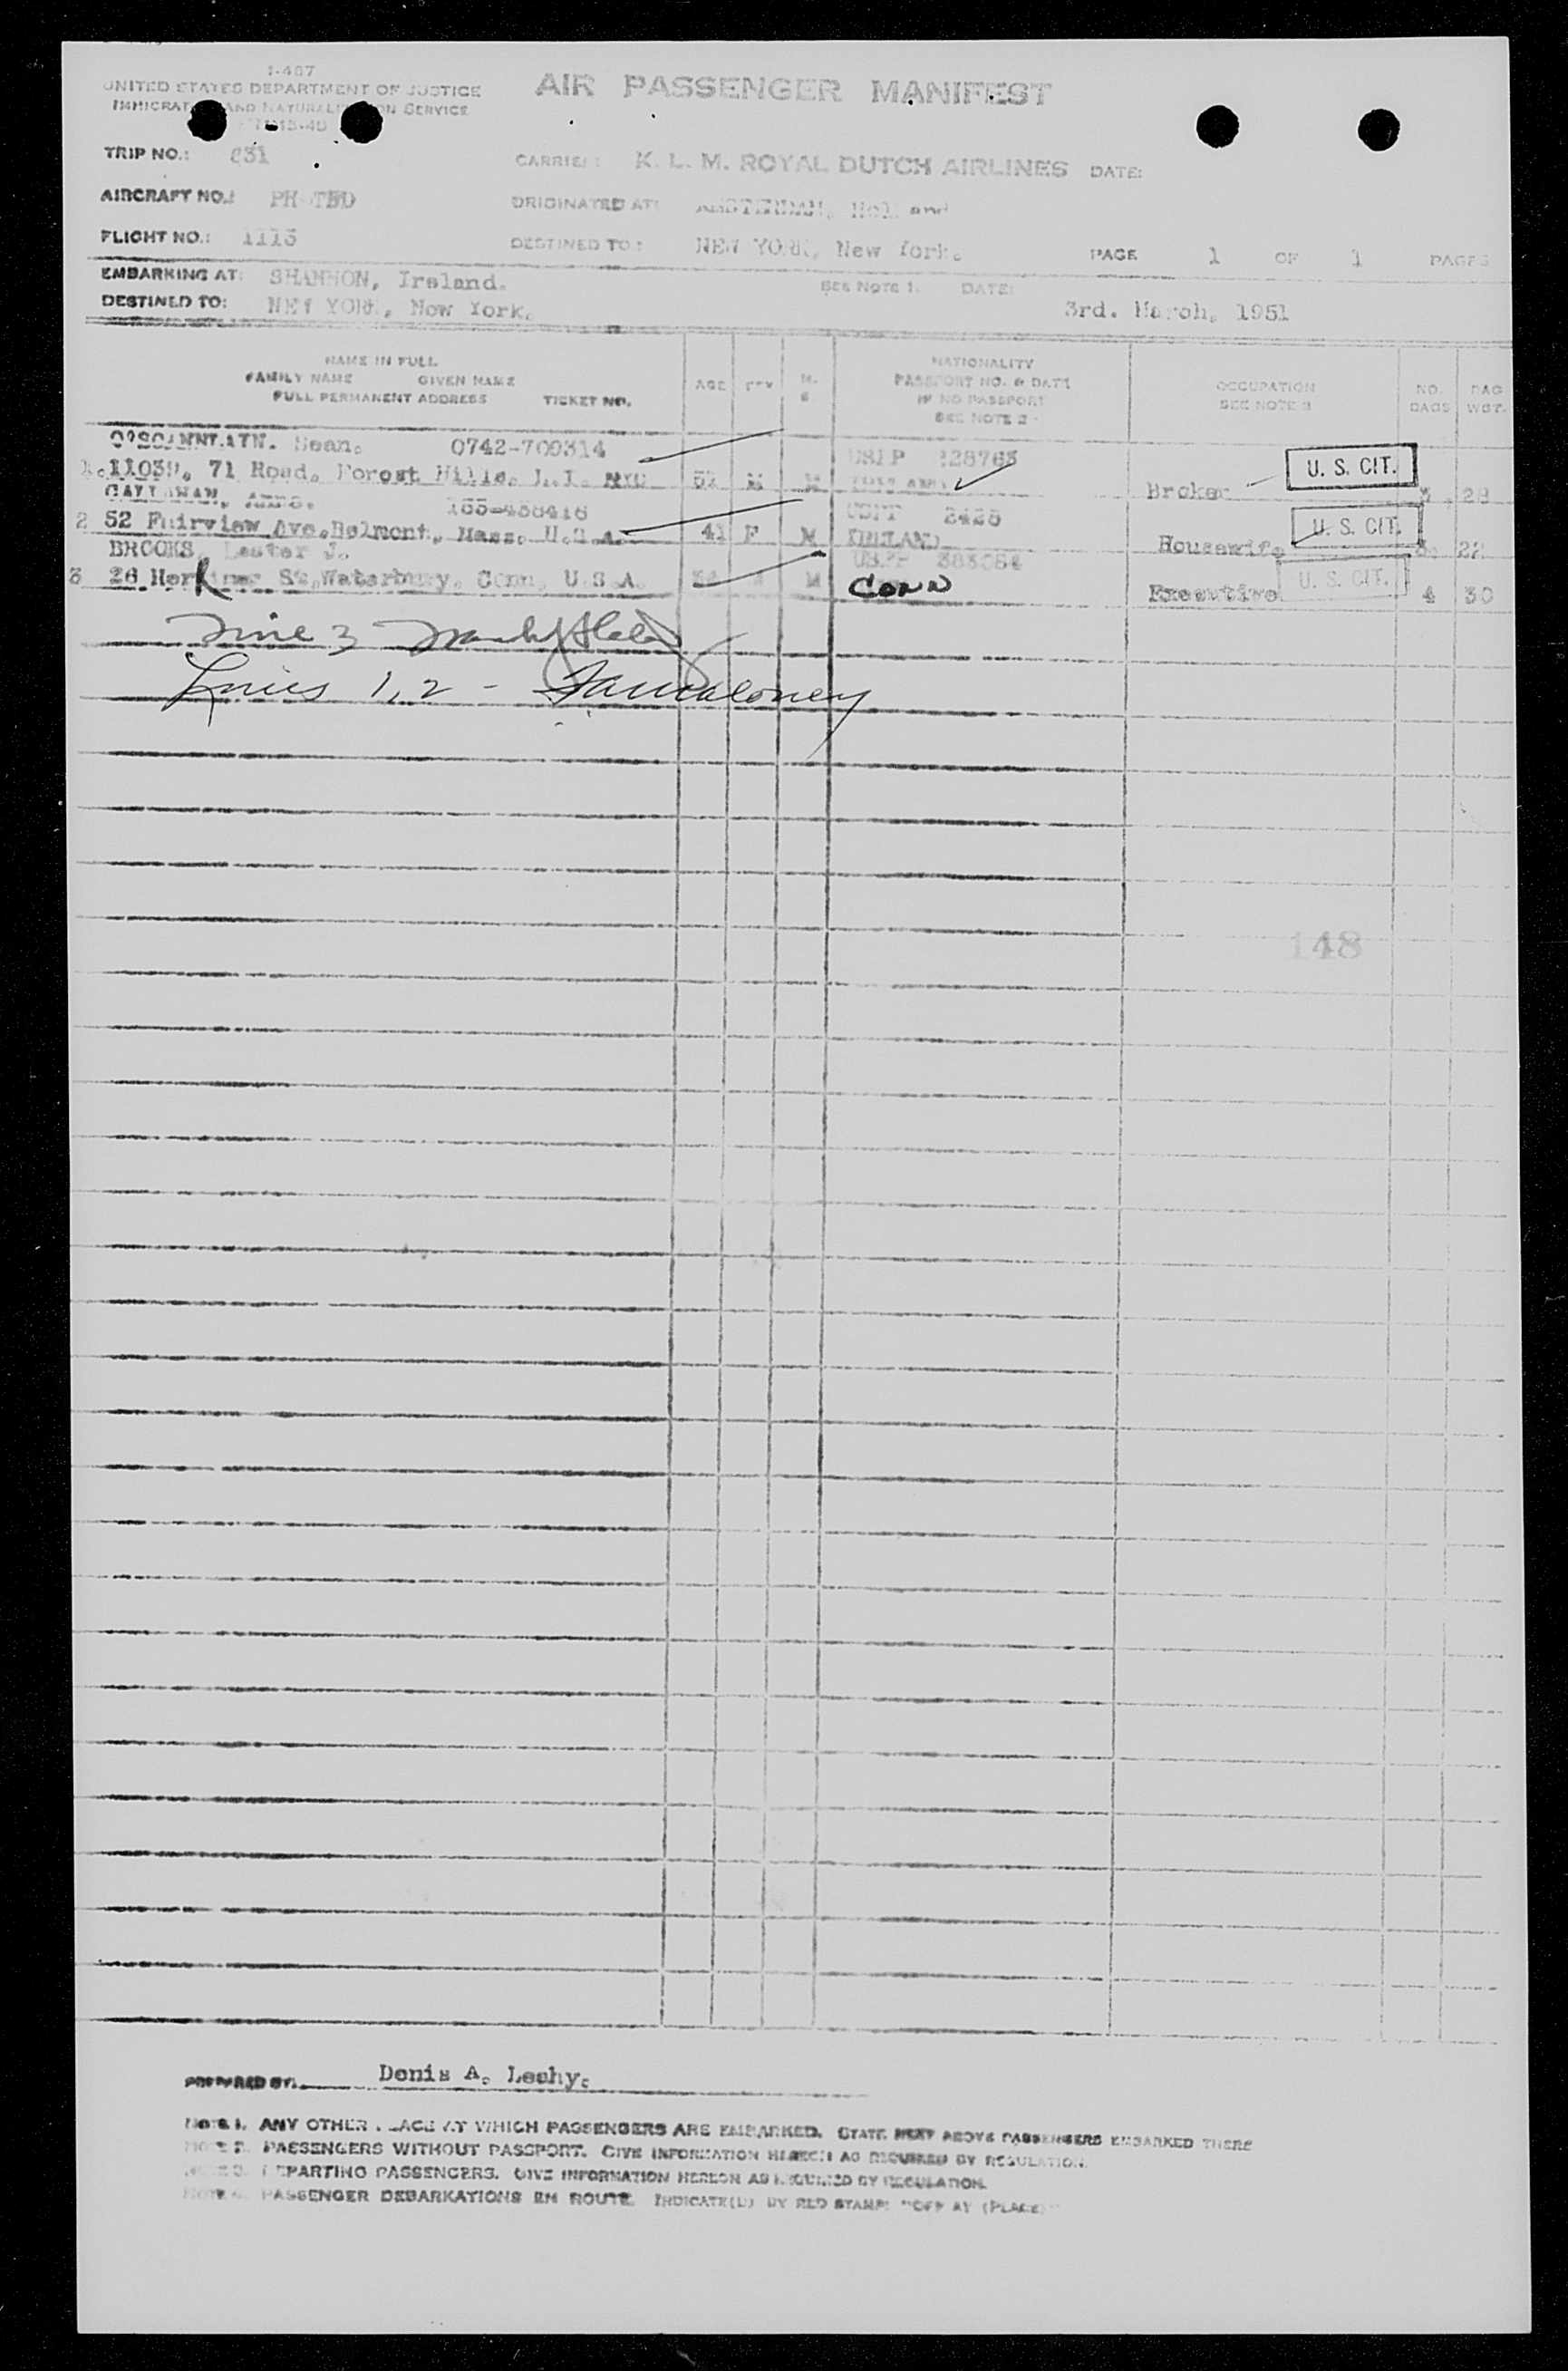 I-467
UNITED STATES DEPARTMENT OF JUSTICE
IMMIGRATION AND NATURALIZATION SERVICE
AIR PASSENGER MANIFEST
TRIP NO.: 831
CARRIER: K. L. M. ROYAL DUTCH AIRLINES DATE:
AIRCRAFT NO.: PH-TED
ORIGINATED AT: AMSTERDAM, Holland
FLIGHT NO.: 1113
DESTINED TO: NEW YORK, New York. PAGE 1 OF 1 PAGES
EMBARKING AT: SHANNON, Ireland. SEE NOTE 1. DATE:
DESTINED TO: NEW YORK, New York. 3rd. March, 1951
NAME IN FULL
FAMILY NAME GIVEN NAME
FULL PERMANENT ADDRESS TICKET NO.
AGE SEX M. S.
NATIONALITY
PASSPORT NO. & DATE
IF NO PASSPORT
SEE NOTE 2
OCCUPATION
SEE NOTE 3
NO. BAGS
BAG WGT.
Sean. 0742-709314 USPP 228763
1. 11039, 71 Road, Forest Hills, L.I. NYC M M Broker U. S. CIT. 3 28
CALLAHAN, Anne. 2428
2 52 Fairview Ave, Belmont, Mass. U.S.A. 41 F M IRELAND Housewife U. S. CIT. 22
BROOKS, Lester J. USPP 383084
3 26 Herkimer St, Waterbury, Conn, U.S.A. M M CONN Executive U. S. CIT. 4 30
Line 3
Lines 1, 2 -
148
PREPARED BY: Denis A. Leahy.
NOTE 1. ANY OTHER PLACE AT WHICH PASSENGERS ARE EMBARKED. STATE NEXT ABOVE PASSENGERS EMBARKED THERE
NOTE 2. PASSENGERS WITHOUT PASSPORT. GIVE INFORMATION HEREON AS REQUIRED BY REGULATION.
NOTE 3. DEPARTING PASSENGERS. GIVE INFORMATION HEREON AS REQUIRED BY REGULATION.
NOTE 4. PASSENGER DEBARKATIONS EN ROUTE. INDICATE(D) BY RED STAMP: "OFF AT (PLACE)"